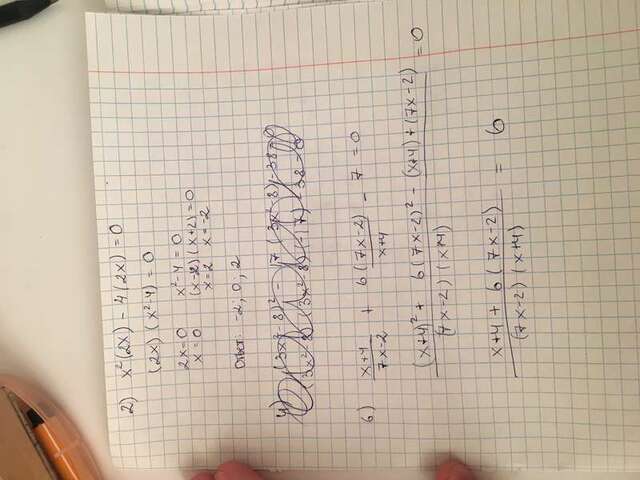 2) x²(2x) - 4(2x) = 0
(2x)(x²-4) = 0
2x=0 x²-4=0
x=0 (x-2)(x+2)=0
x=2 x=-2
Ответ: -2; 0; 2
4)
6) (x+4)/(7x-2) + 6(7x-2)/(x+4) - 7 = 0
((x+4)² + 6(7x-2)² - (x+4)+(7x-2))/((7x-2)(x+4)) = 0
(x+4+6(7x-2))/((7x-2)(x+4)) = 6